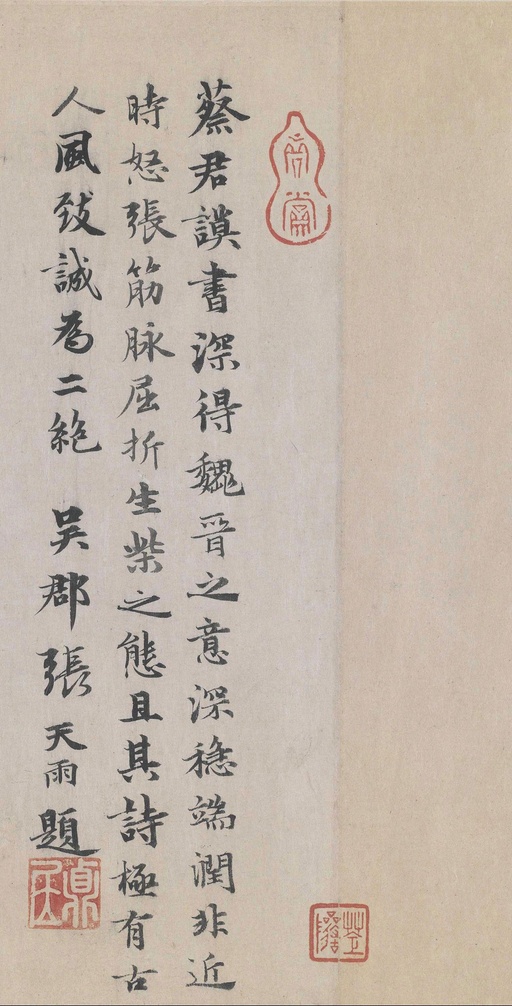 蔡君謨書深得魏晉之意深穩端潤非近
時怒張筋脉屈折生柴之態且其詩極有古
人風致誠為二絶 吳郡張天雨題